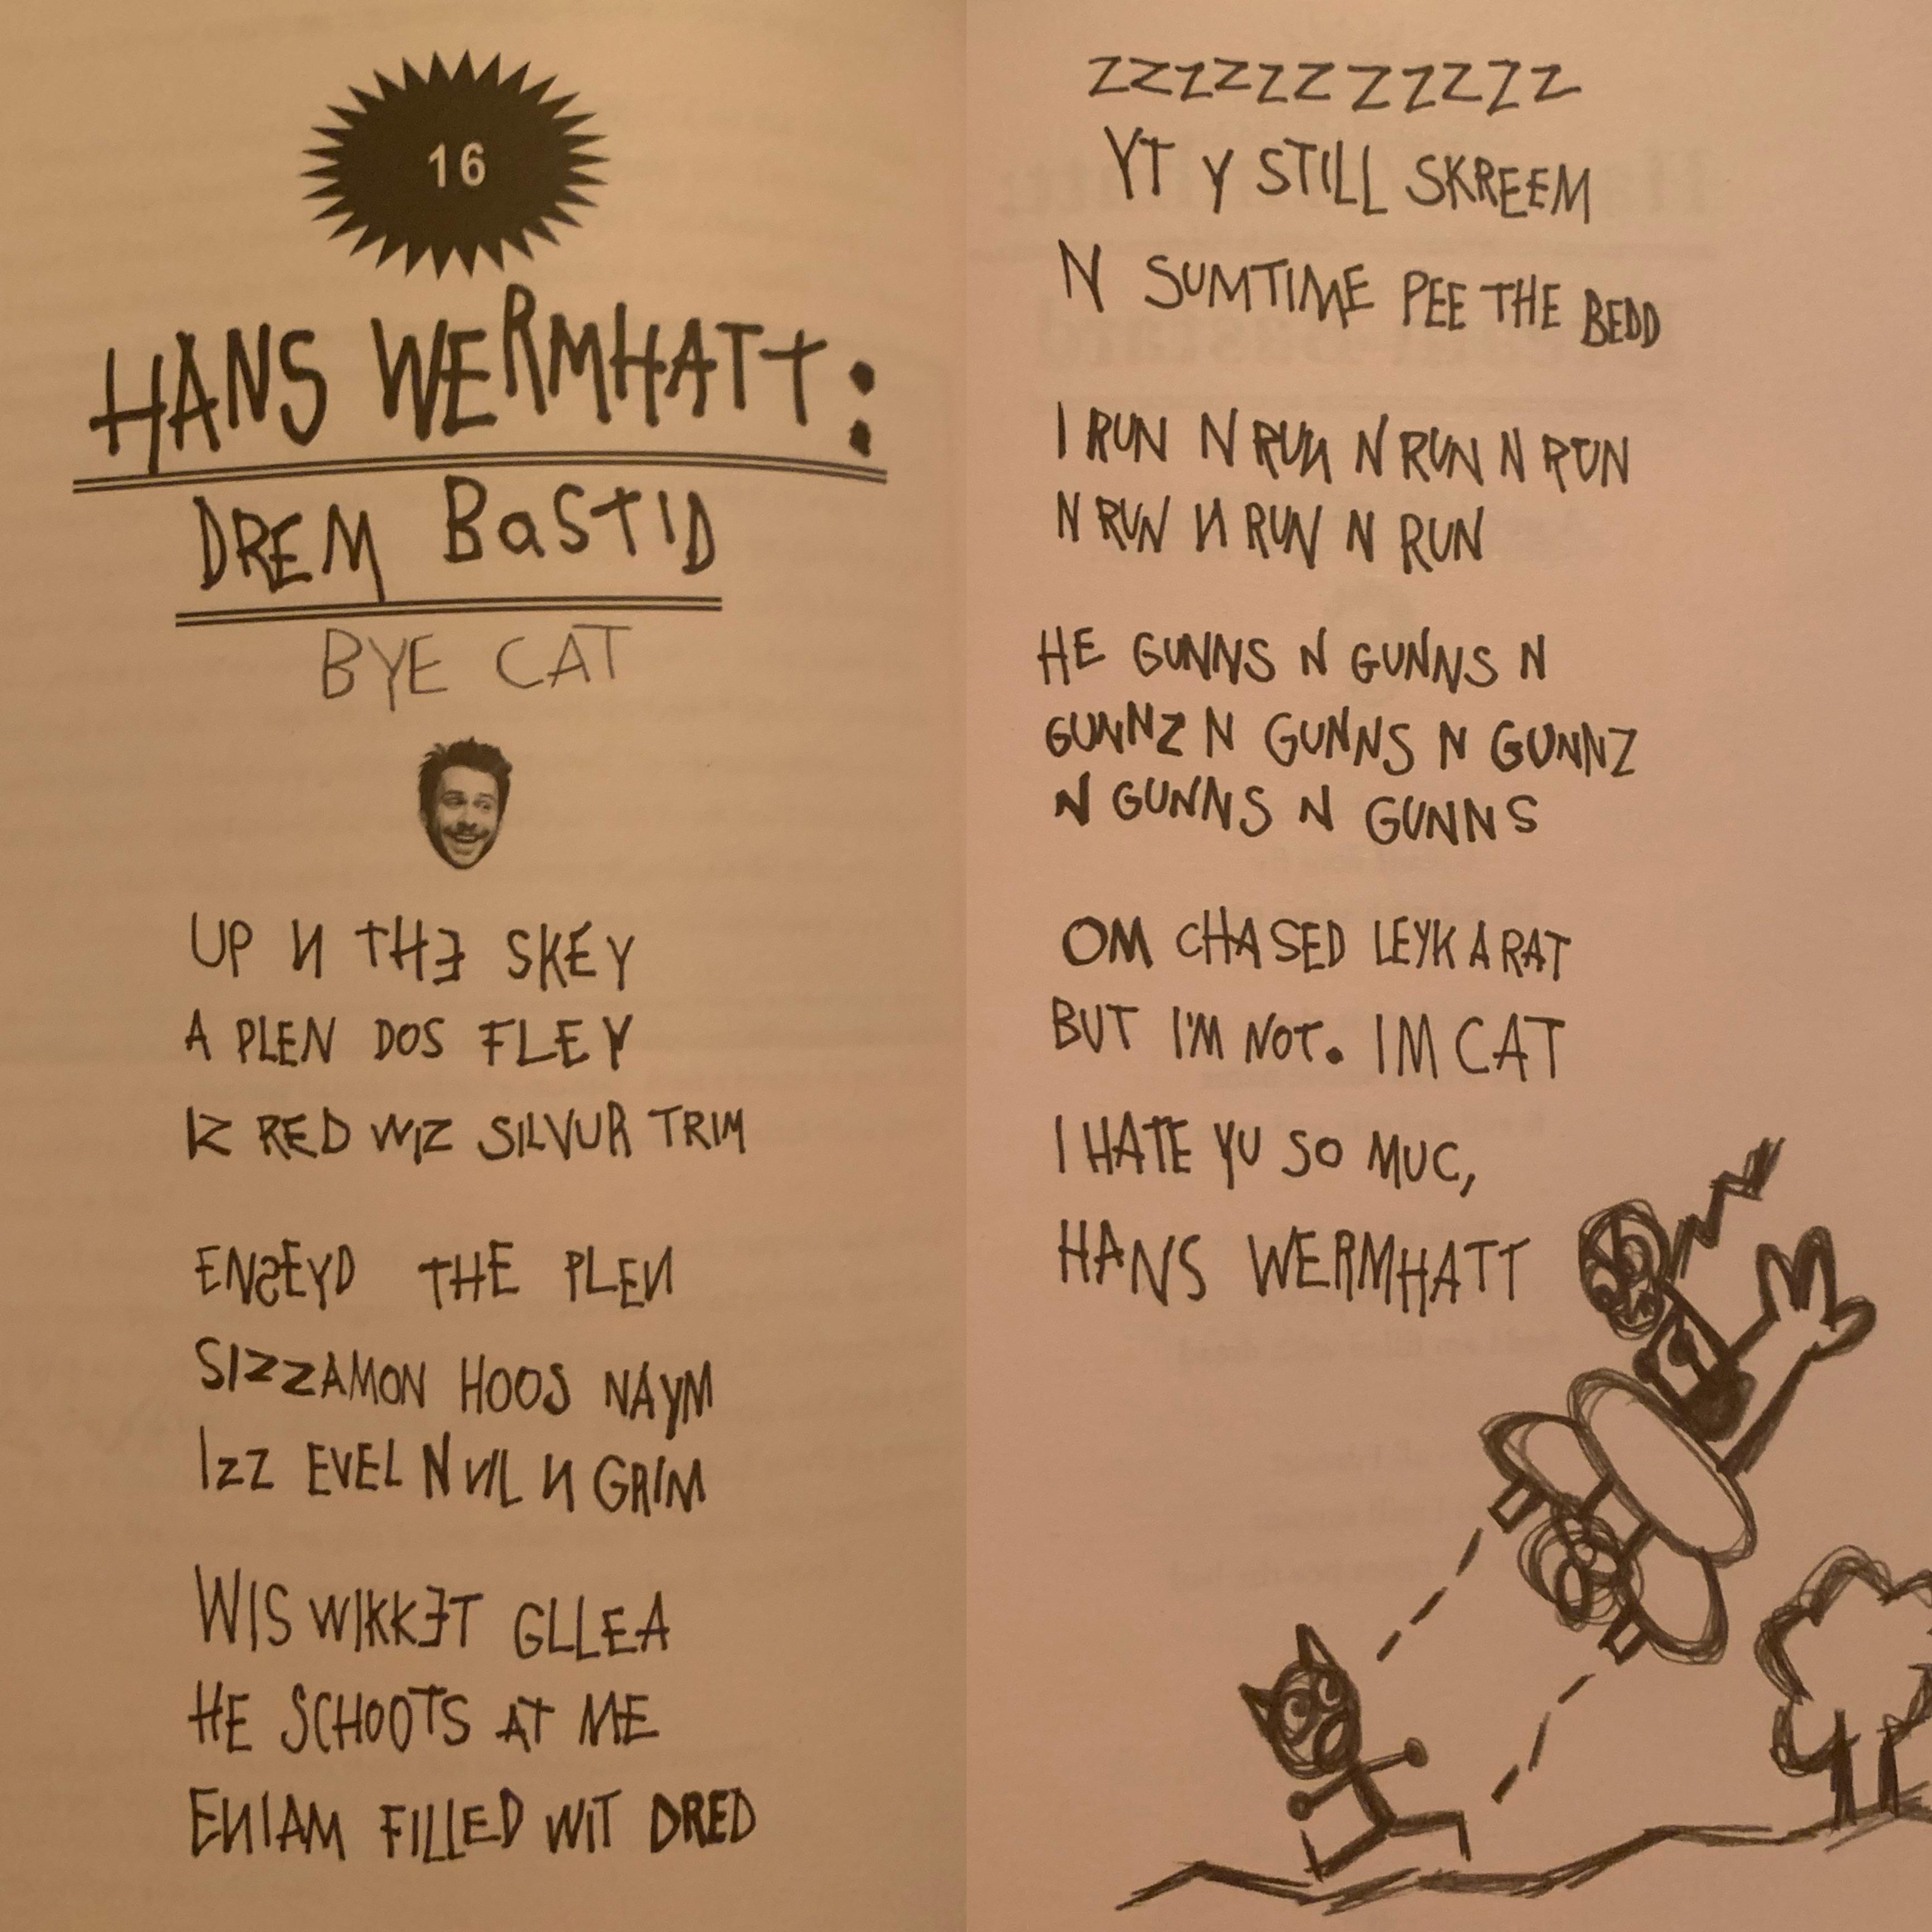 16
HANS WERMHATT:
DREM BaSTID
BYE CAT
UP N THE SKEY
A PLEN DOS FLEY
IZ RED WIZ SILVUR TRIM
ENSEYD THE PLEN
SIZZAMON HOOS NAYM
IZZ EVEL N VIL N GRIM
WIS WIKKET GLLEA
HE SCHOOTS AT ME
EN IAM FILLED WIT DRED
ZZZZZZZZZZZZ
YT Y STILL SKREEM
N SUMTIME PEE THE BEDD
I RUN N RUN N RUN N RUN
N RUN N RUN N RUN
HE GUNNS N GUNNS N
GUNNZ N GUNNS N GUNNZ
N GUNNS N GUNNS
OM CHASED LEYK A RAT
BUT I'M NOT. IM CAT
I HATE YU SO MUC,
HANS WERMHATT